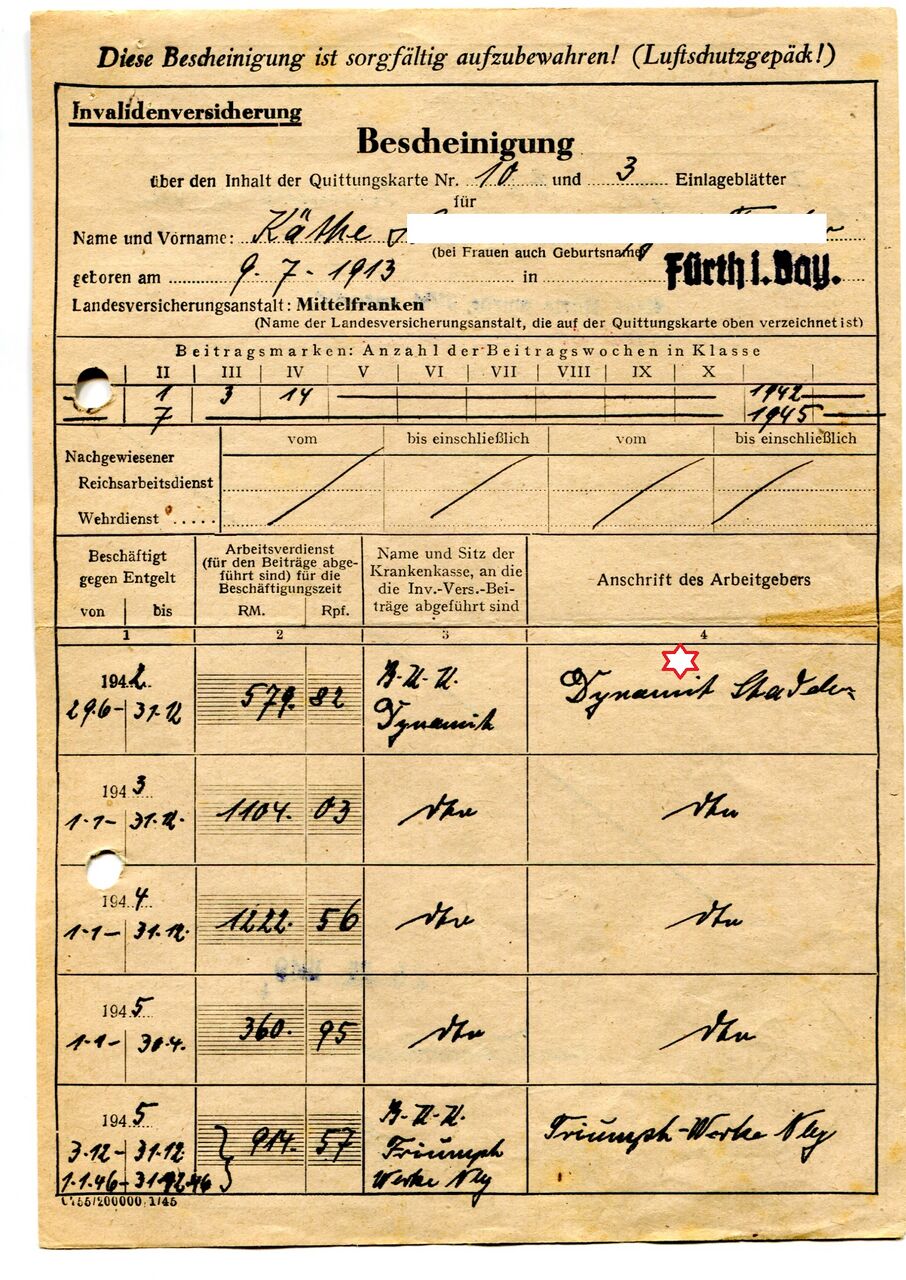 Diese Bescheinigung ist sorgfältig aufzubewahren! (Luftschutzgepäck!)
Invalidenversicherung
Bescheinigung
über den Inhalt der Quittungskarte Nr. 10 und 3 Einlageblätter
für
Name und Vorname: Käthe
(bei Frauen auch Geburtsname)
geboren am 9.7.-1913 in Fürth i. Bay.
Landesversicherungsanstalt: Mittelfranken
(Name der Landesversicherungsanstalt, die auf der Quittungskarte oben verzeichnet ist)
Beitragsmarken: Anzahl der Beitragswochen in Klasse
II III IV V VI VII VIII IX X
1 3 14 1942
7 1945
vom bis einschließlich vom bis einschließlich
Nachgewiesener
Reichsarbeitsdienst
Wehrdienst
Beschäftigt gegen Entgelt
von bis
Arbeitsverdienst
(für den Beiträge abge-
führt sind) für die
Beschäftigungszeit
RM. Rpf.
Name und Sitz der
Krankenkasse, an die
die Inv.-Vers.-Bei-
träge abgeführt sind
Anschrift des Arbeitgebers
1 2 3 4
1942
29.6- 31.12 579. 82 B.K.K. Dynamit Dynamit Stadeln
1943
1.1- 31.12. 1104. 03 dto dto
1944
1.1- 31.12. 1222. 56 dto dto
1945
1.1- 30.4. 360. 95 dto dto
1945
3.12- 31.12. 914. 57 B.K.K. Triumph Werke Nbg Triumph-Werke Nbg
1.1.46-
0755/200000 1/45